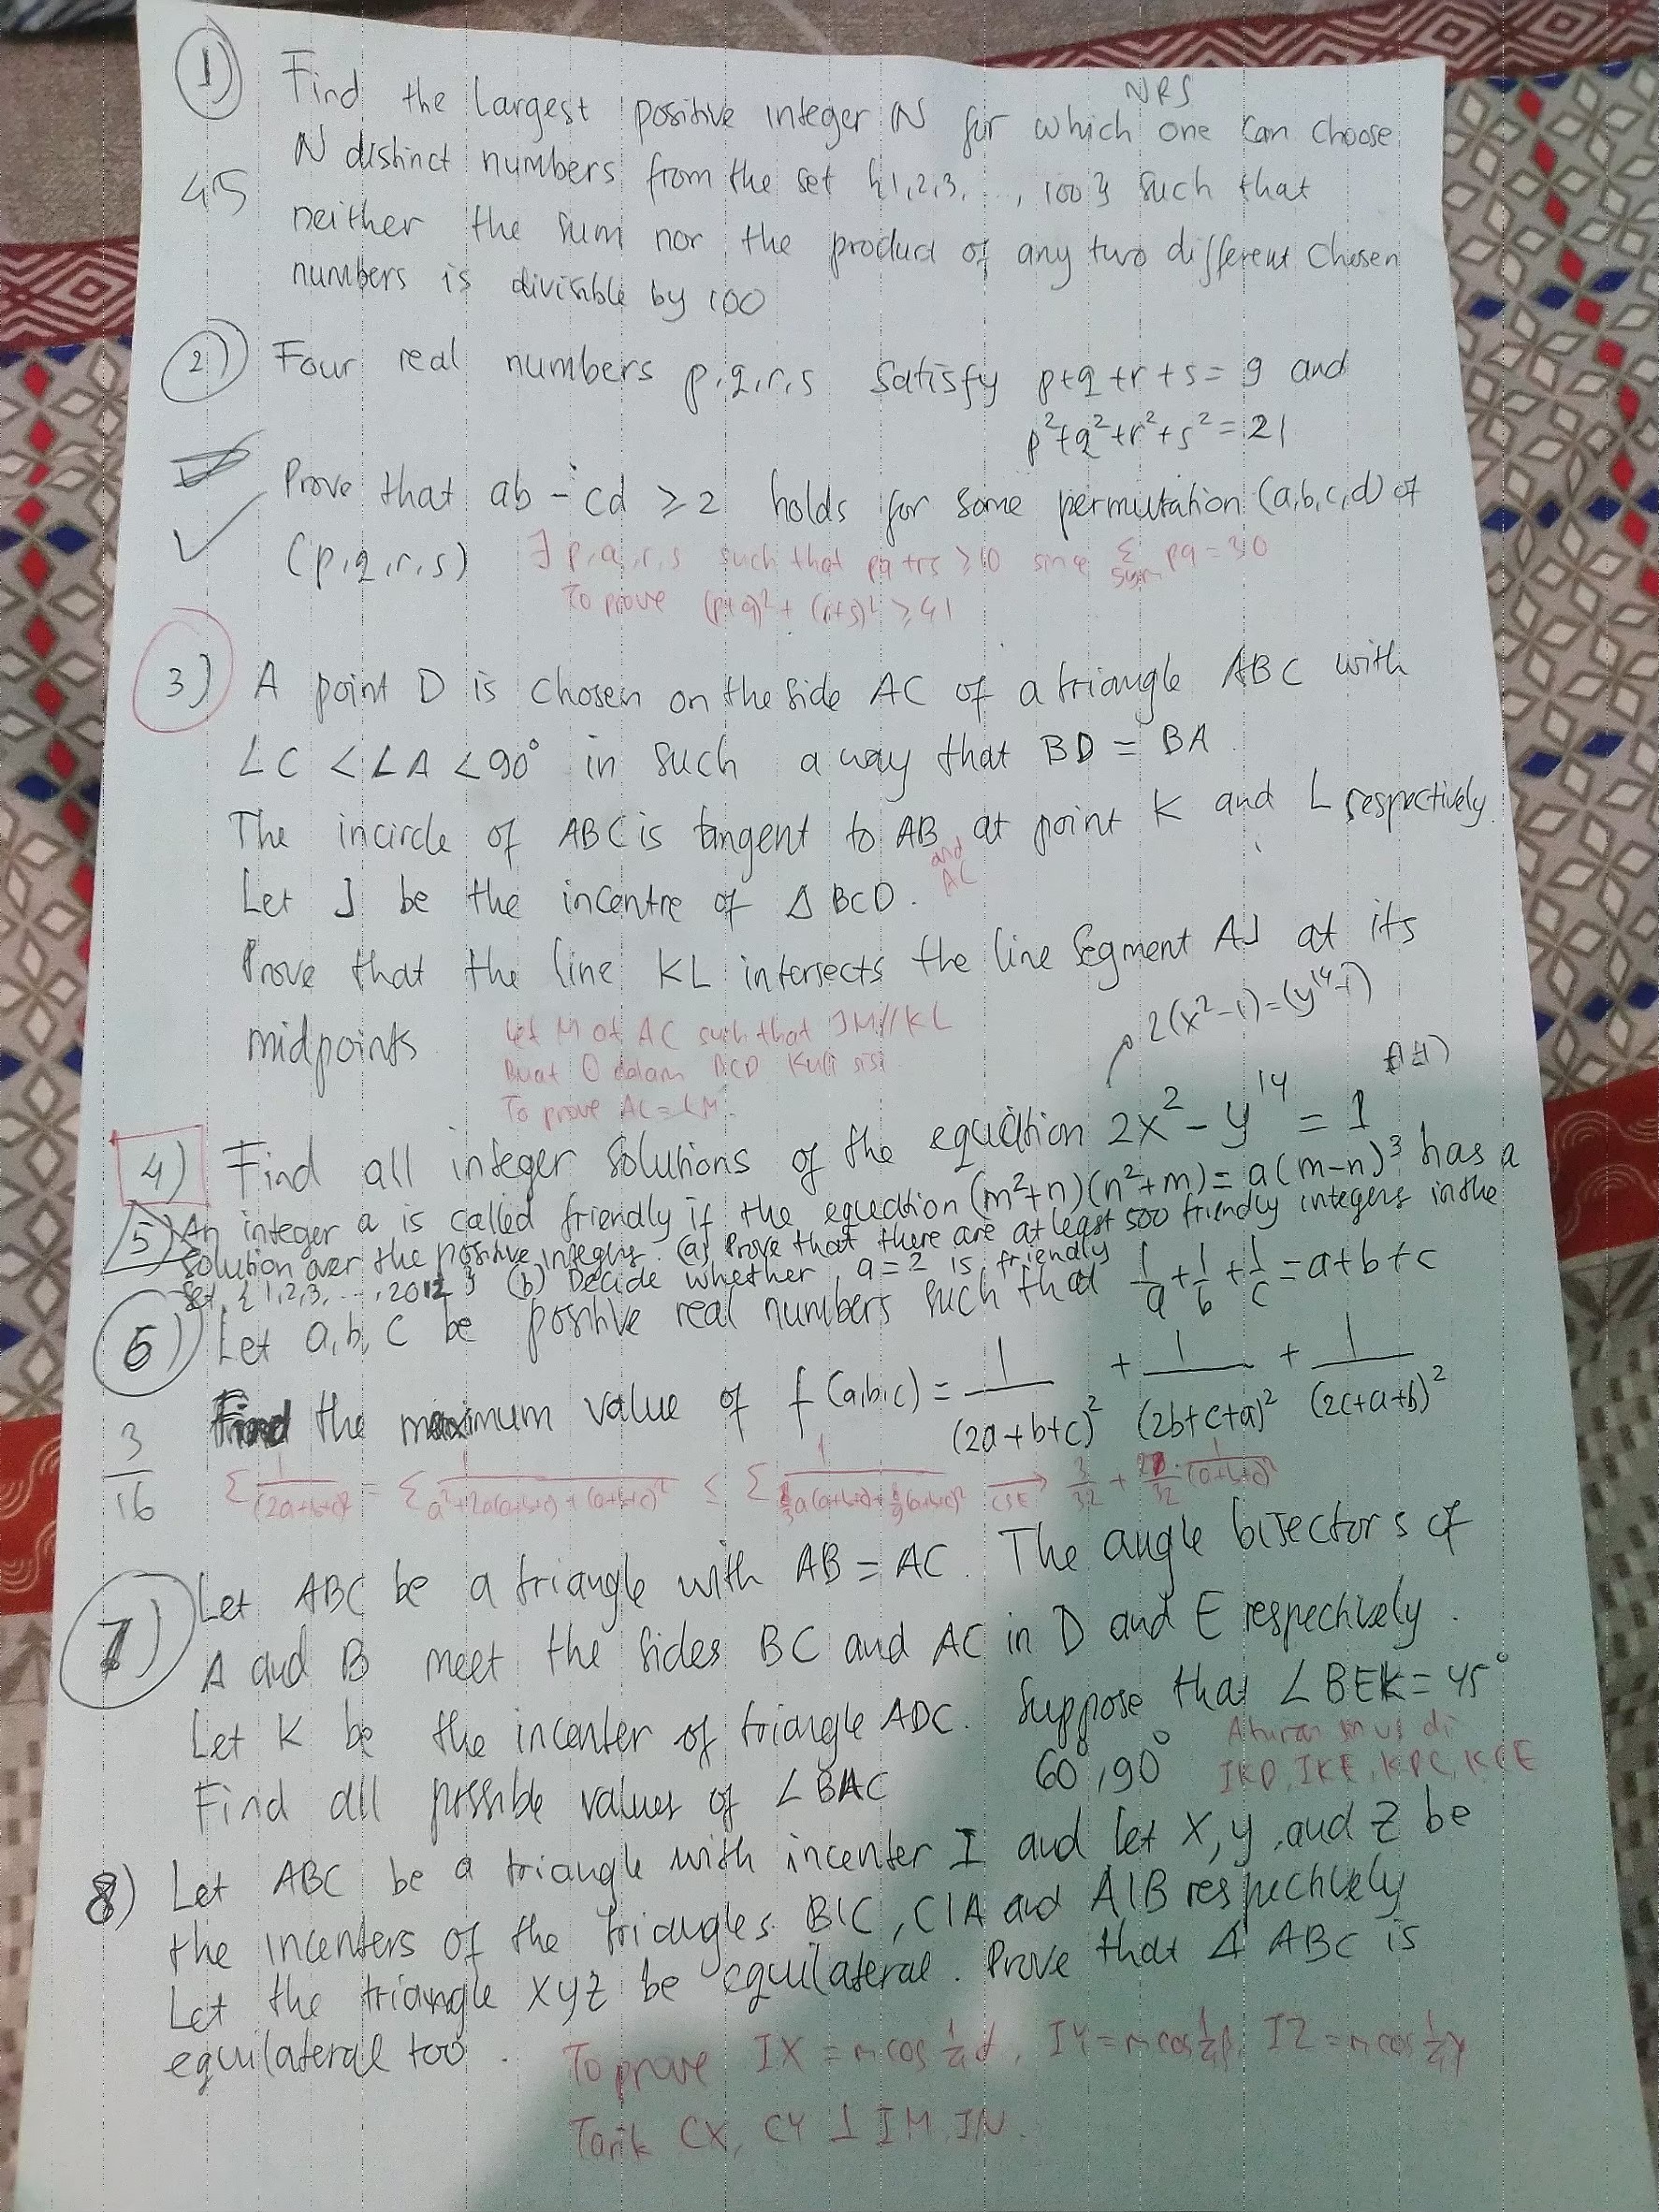 NRS
1) Find the largest positive integer N for which one can choose
N distinct numbers from the set {1,2,3,..., 100} such that
45
neither the sum nor the product of any two different chosen
numbers is divisible by 100
2) Four real numbers p,q,r,s satisfy p+q+r+s = 9 and
p²+q²+r²+s² = 21
Prove that ab - cd ≥ 2 holds for some permutation (a,b,c,d) of
(p,q,r,s) ∃ p,q,r,s such that pq+rs ≥ 10 since Σ sym pq = 30
To prove (p+q)² + (r+s)² ≥ 41
3) A point D is chosen on the side AC of a triangle ABC with
∠C < ∠A < 90° in such a way that BD = BA.
The incircle of ABC is tangent to AB and AC at point K and L respectively.
Let J be the incentre of Δ BCD.
Prove that the line KL intersects the line segment AJ at its
midpoints
Let M of AC such that JM//KL
Buat O dalam BCD
To prove AL = LM.
2(x²-1) = (y¹⁴-1)
4) Find all integer solutions of the equation 2x² - y¹⁴ = 1
5) An integer a is called friendly if the equation (m²+n)(n²+m) = a(m-n)³ has a
solution over the positive integers. (a) Prove that there are at least 500 friendly integers in the
set {1,2,3,...,2012} (b) Decide whether a=2 is friendly
6) Let a,b,c be positive real numbers such that 1/a + 1/b + 1/c = a+b+c
Find the maximum value of f(a,b,c) = 1/(2a+b+c)² + 1/(2b+c+a)² + 1/(2c+a+b)²
3/16
7) Let ABC be a triangle with AB = AC. The angle bisectors of
A and B meet the sides BC and AC in D and E respectively.
Let K be the incenter of triangle ADC. Suppose that ∠BEK = 45°
Find all possible values of ∠BAC 60°, 90°
Aturan sinus di
IKD, IKE, KDC, KCE
8) Let ABC be a triangle with incenter I and let X, Y, and Z be
the incenters of the triangles BIC, CIA and AIB respectively
Let the triangle XYZ be equilateral. Prove that Δ ABC is
equilateral too.
To prove IX = m cos ¼α, IY = m cos ¼β, IZ = m cos ¼γ
Tarik CX, CY ⊥ IM, IN.